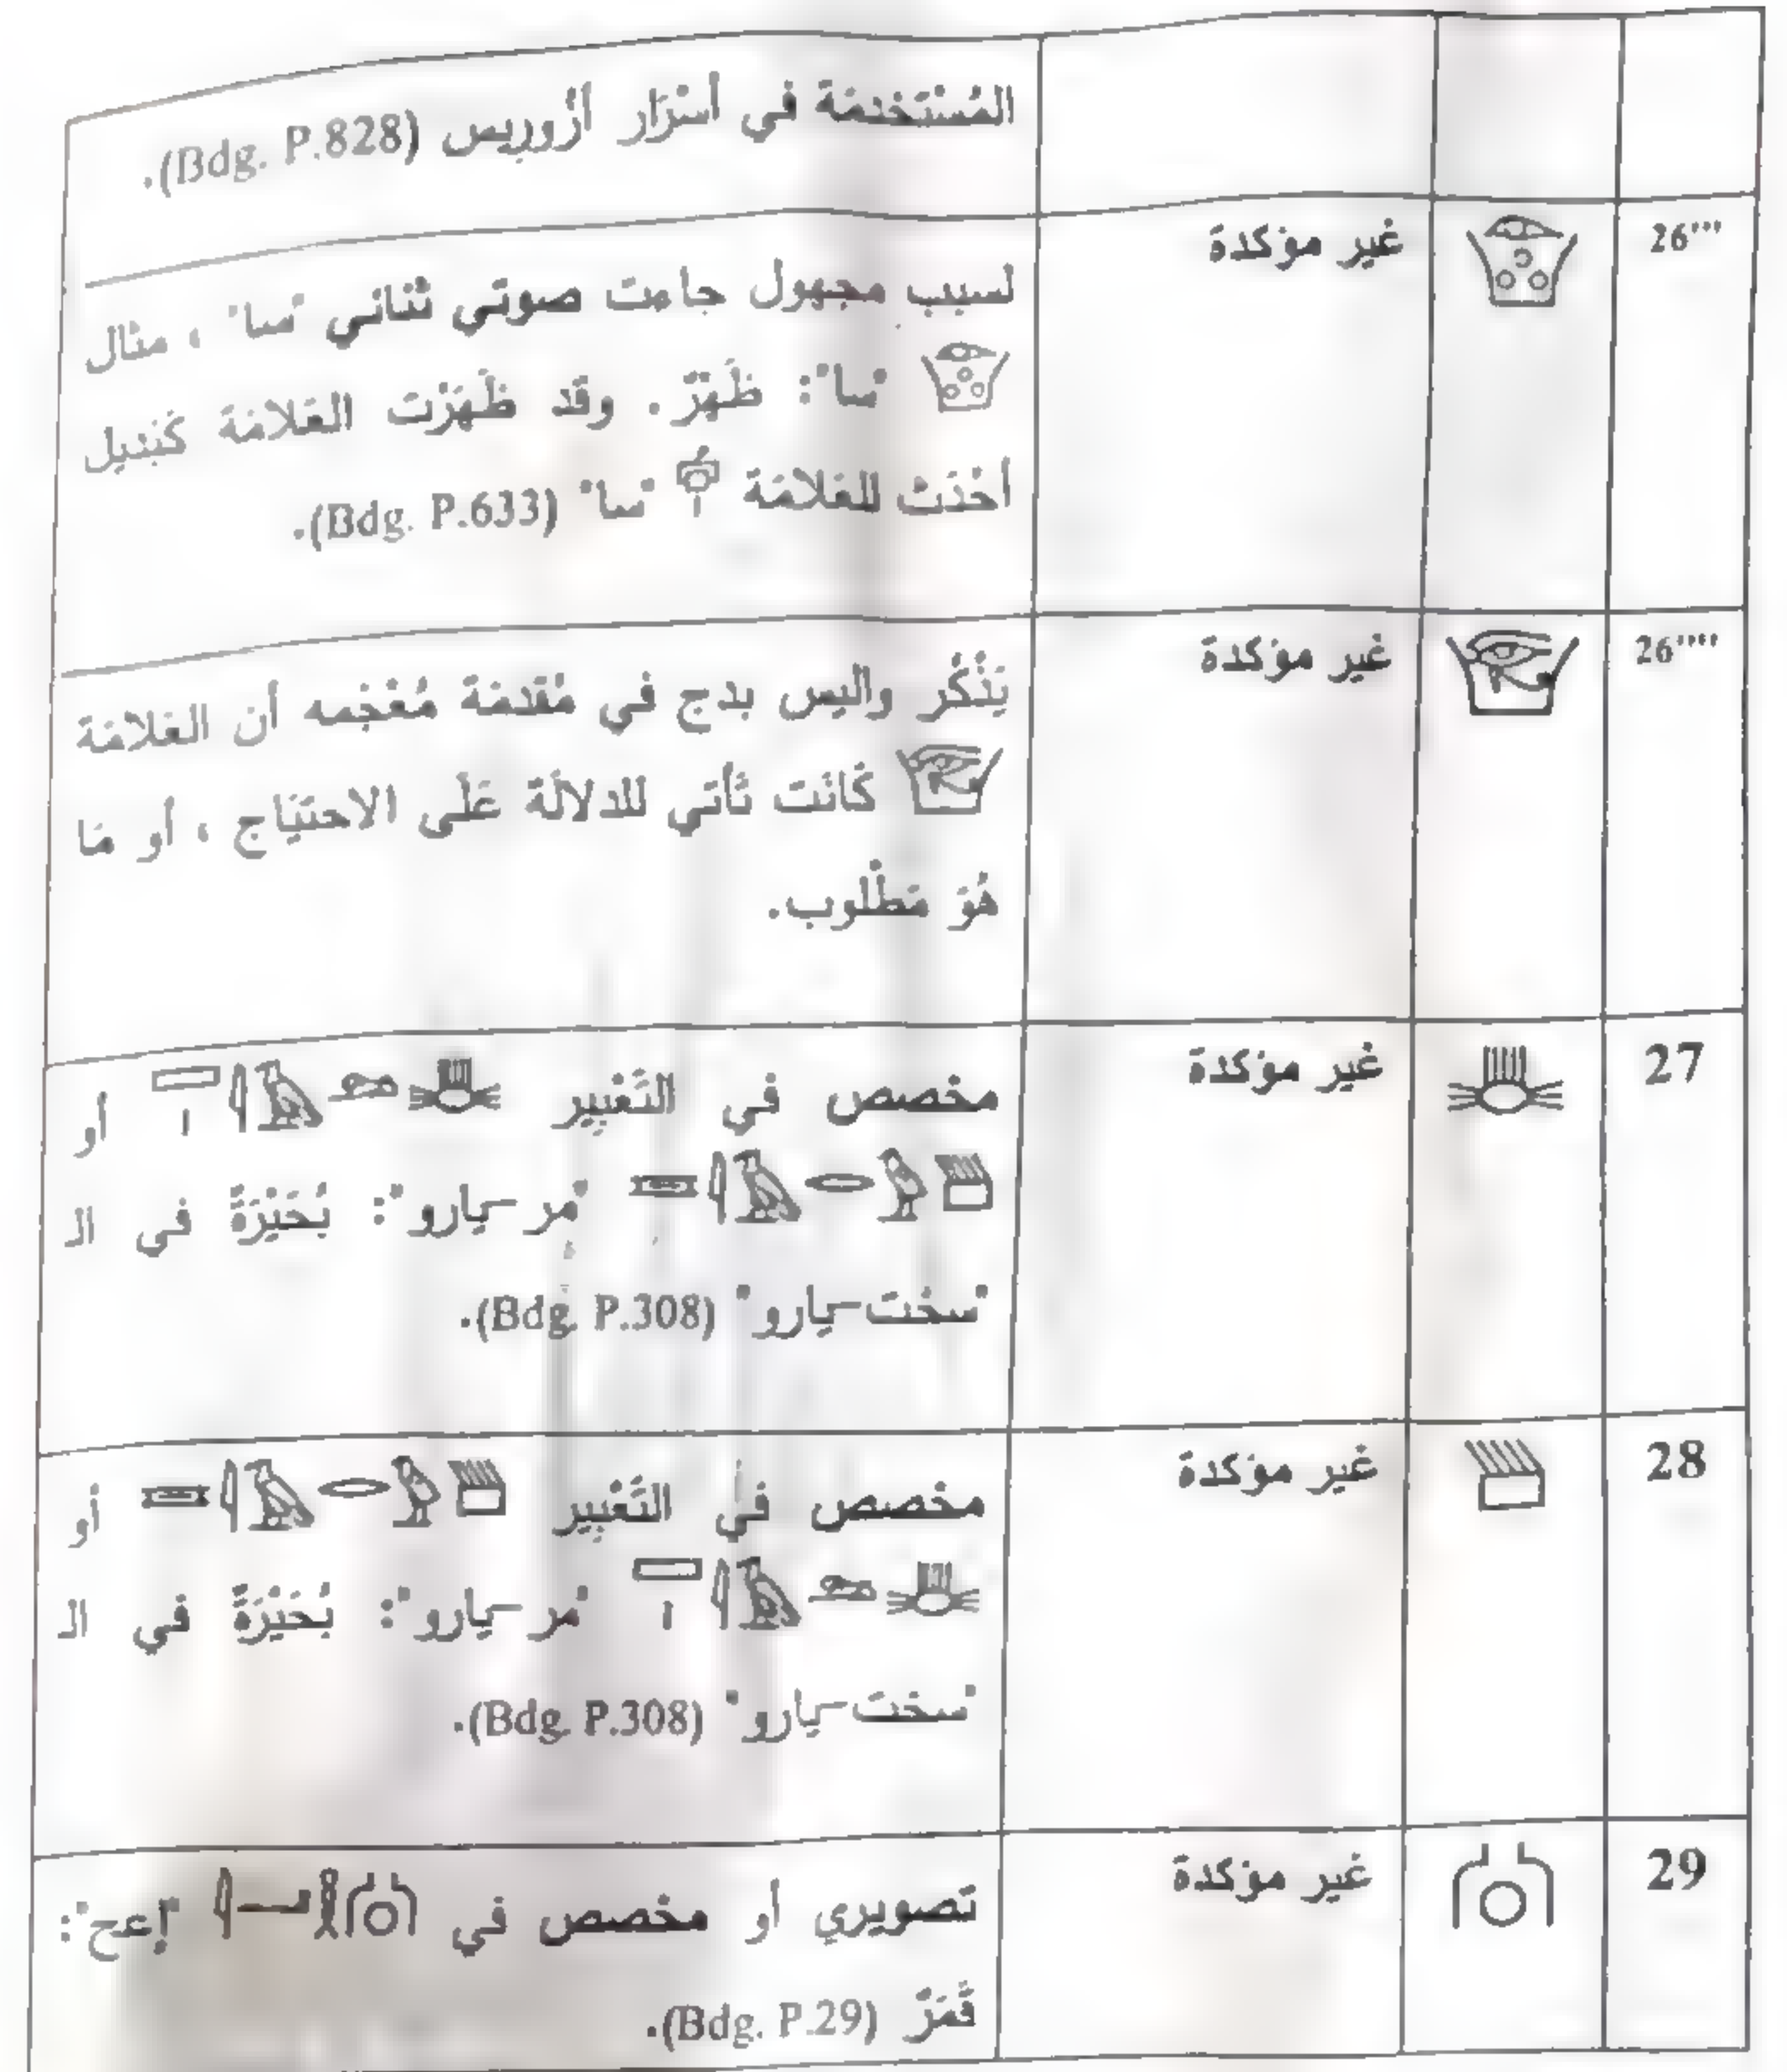 المُسْتَخدمَة في أسْرَار أزُوريس (Bdg. P.828).
26''' غير مؤكدة
لسبب مجهول جاءت صوتي ثنائي "سا" ، مثال
"سا": ظَهْرٌ. وقد ظَهَرْت العَلامَة كَبَديل
أحْدَث للعَلامَة "سا" (Bdg. P.633).
26'''' غير مؤكدة
يَذْكُر واليس بدج في مُقدمَة مُعْجَمه أن العَلامَة
كَانَت تأتي للدلالَة عَلَى الاحتيَاج ، أو مَا
هُوَ مَطْلوب.
27 غير مؤكدة
مخصص في التَعْبِير أو
"مر-يارو": بُحَيْرَةٌ في الـ
"سخت-يارو" (Bdg. P.308).
28 غير مؤكدة
مخصص في التَعْبِير أو
"مر-يارو": بُحَيْرَةٌ في الـ
"سخت-يارو" (Bdg. P.308).
29 غير مؤكدة
تصويري أو مخصص في "إعح":
قَمَرٌ (Bdg. P.29).